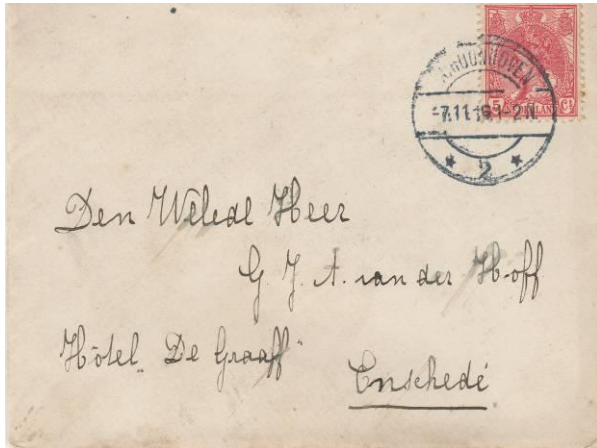 5 Ct
1-2N
2
Den Weledl Heer
G. J. A. van der Hoff
Hôtel „De Graaff"
Enschedé